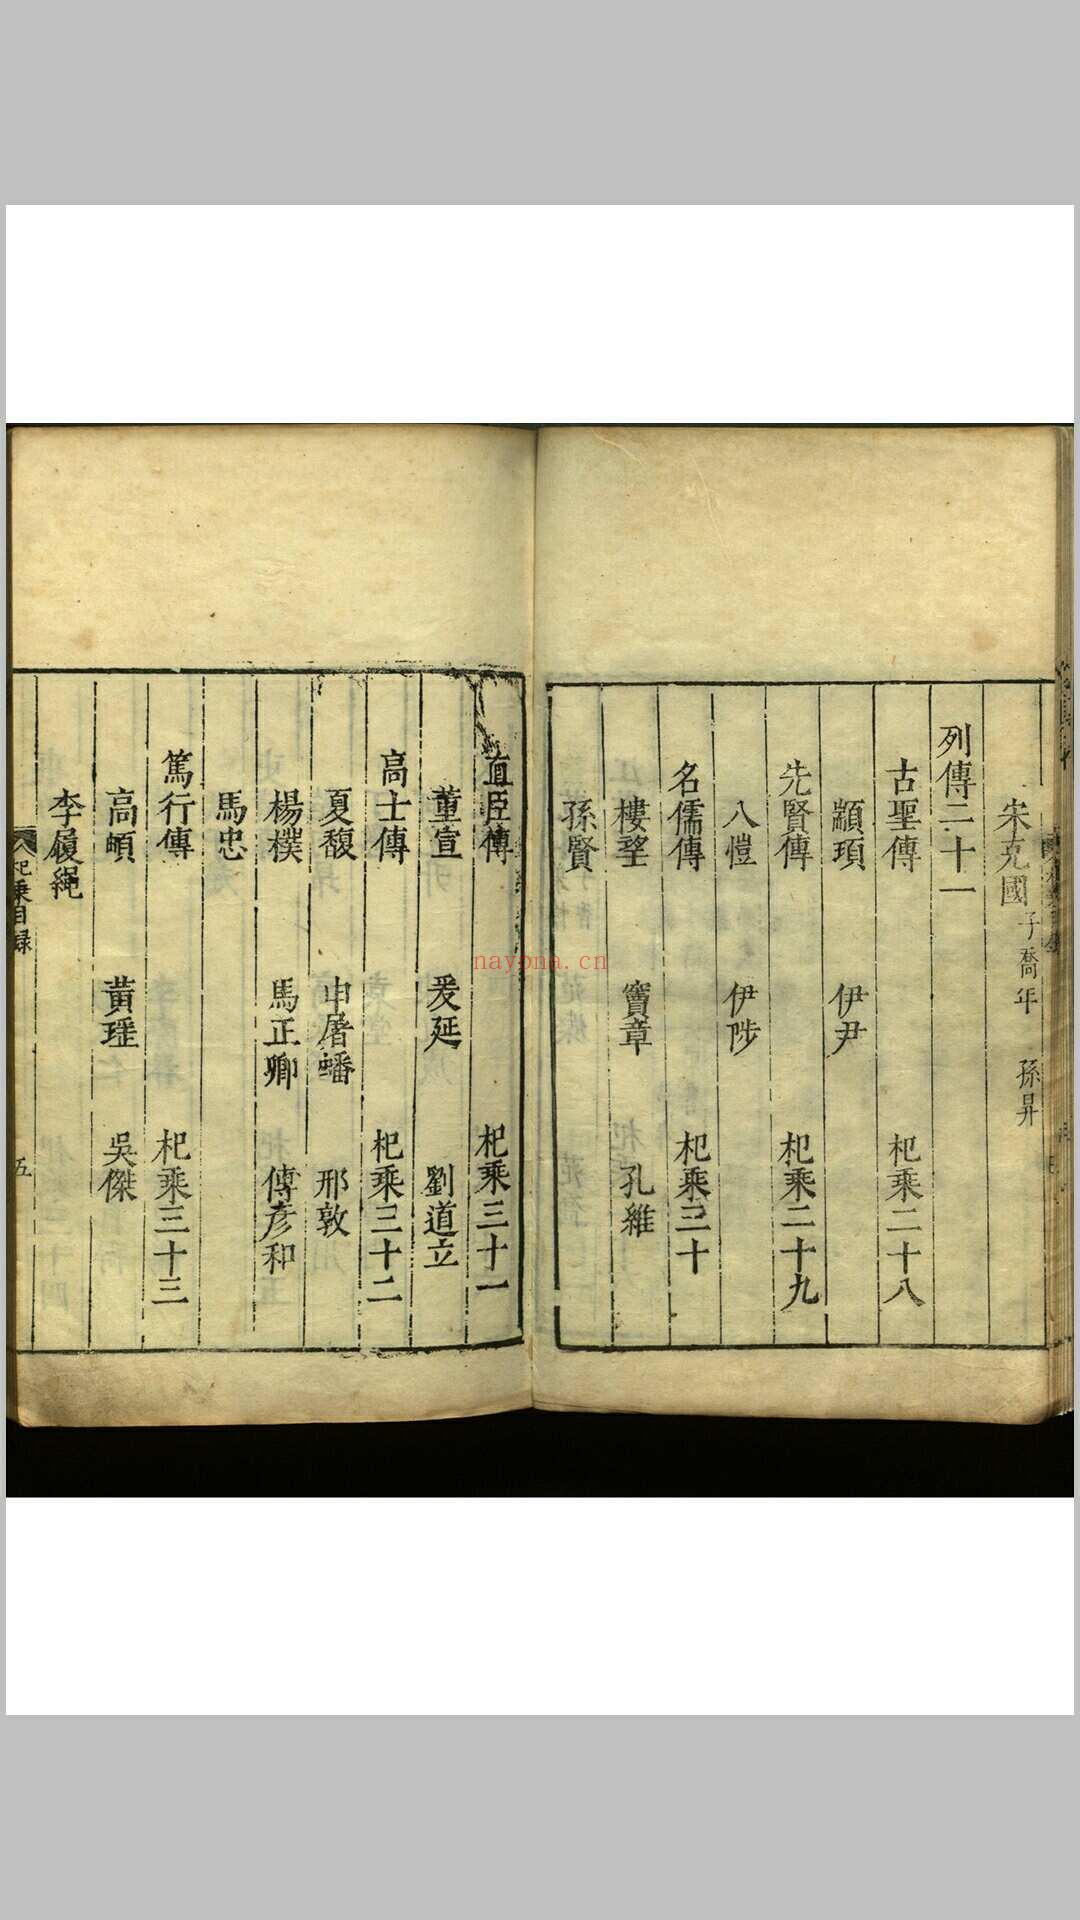 宋克國 子喬年 孫昇
列傳二十一
古聖傳 杞乘二十八
顓頊 伊尹
先賢傳 杞乘二十九
八愷 伊陟
名儒傳 杞乘三十
樓望 竇章 孔維
孫賢
直臣傳 杞乘三十一
董宣 爰延 劉道立
高士傳 杞乘三十二
夏馥 申屠蟠 邢敦
楊樸 馬正卿 傅彥和
馬忠
篤行傳 杞乘三十三
高頔 黃琺 吳傑
李履繩
杞乘目録
五
nayona.cn